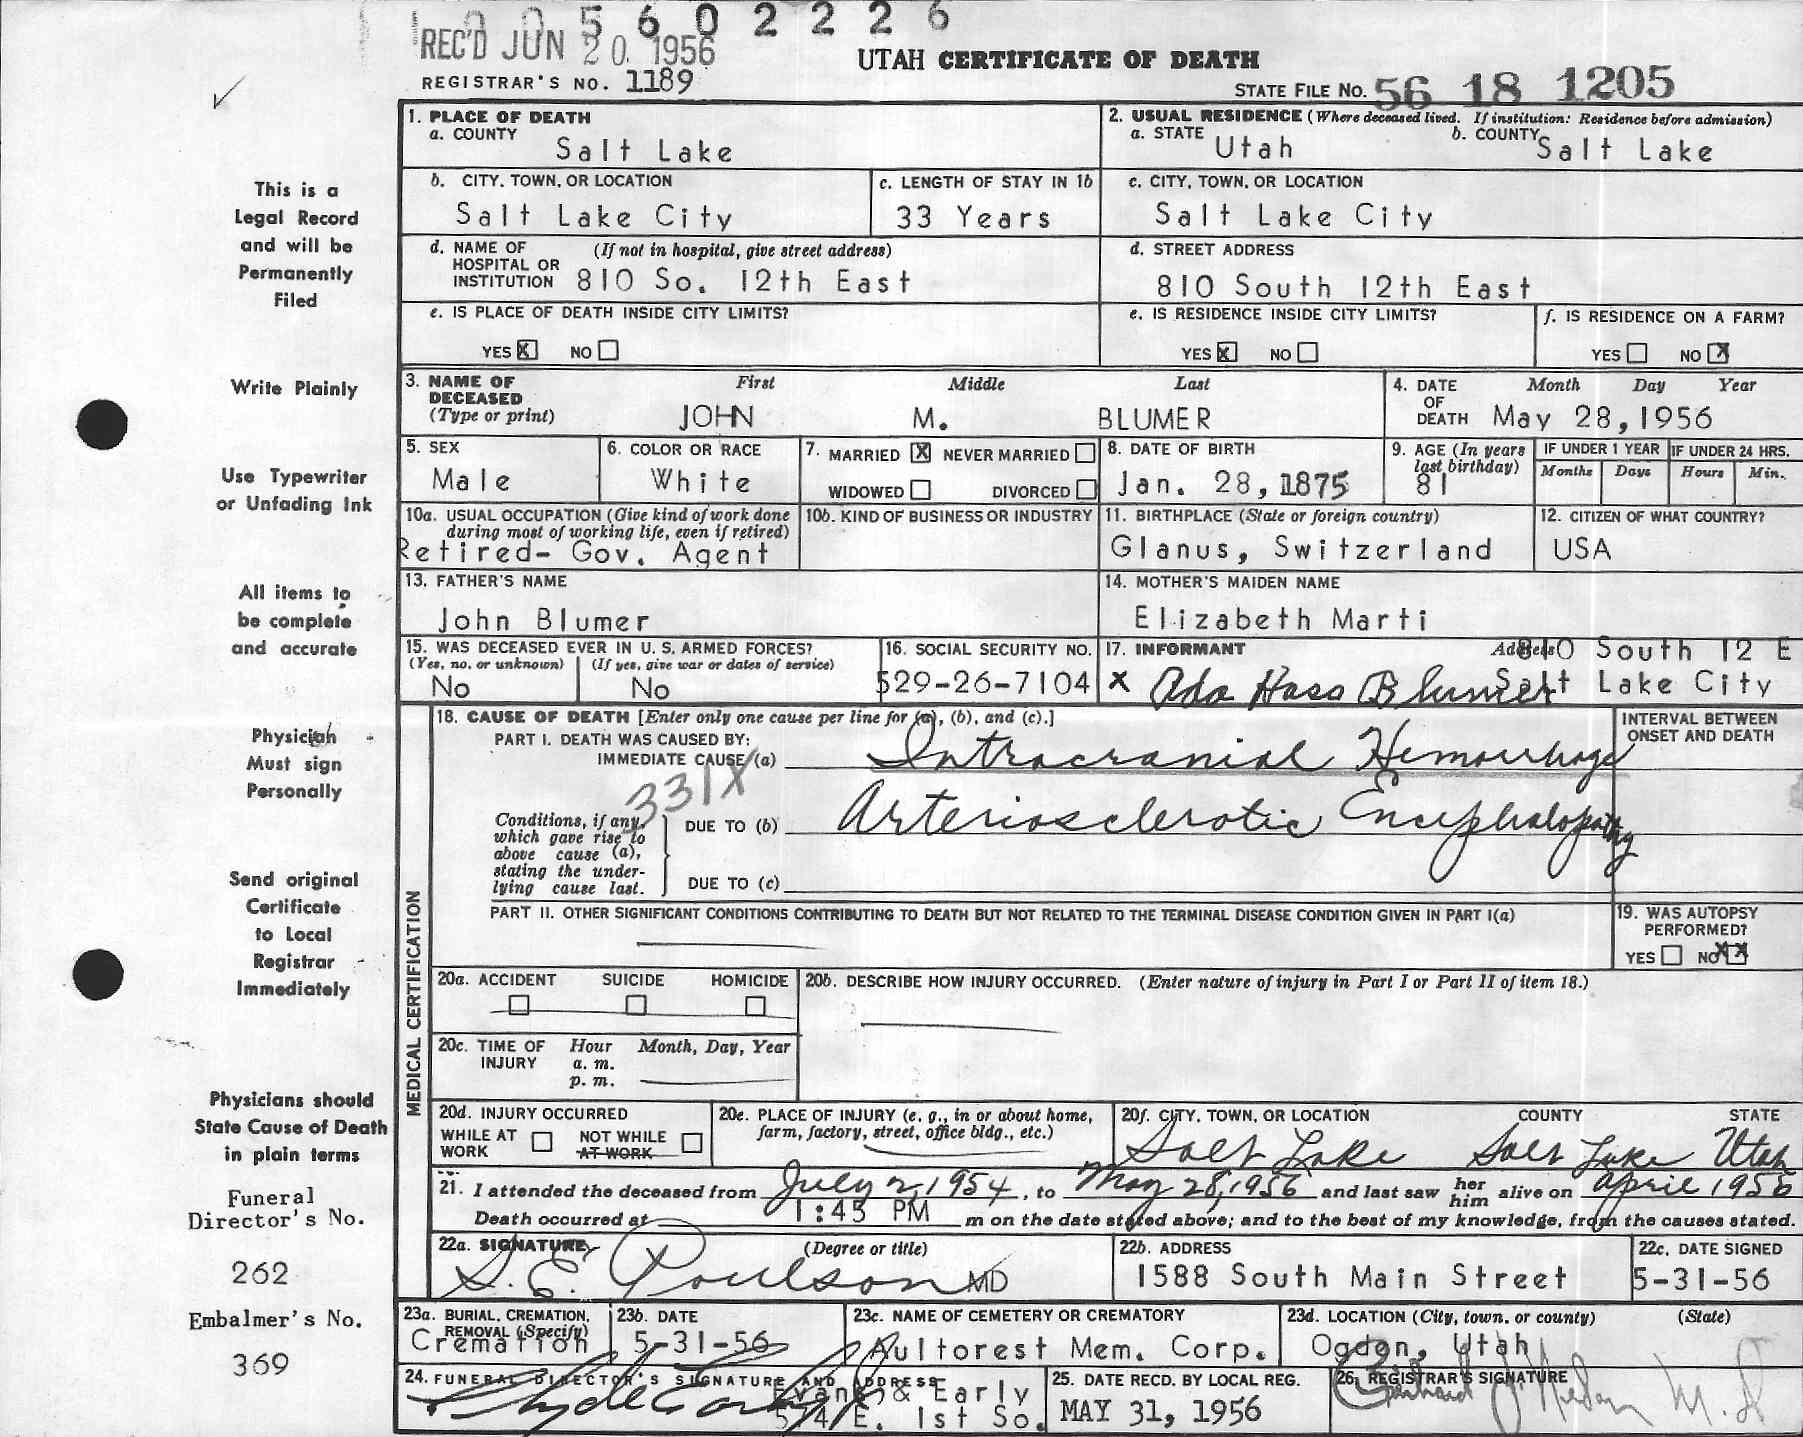 0 0 5 6 0 2 2 2 6
REC'D JUN 20 1956
UTAH CERTIFICATE OF DEATH
REGISTRAR'S NO. 1189
STATE FILE NO. 56 18 1205
This is a
Legal Record
and will be
Permanently
Filed
Write Plainly
Use Typewriter
or Unfading Ink
All items to
be complete
and accurate
Physician
Must sign
Personally
Send original
Certificate
to Local
Registrar
Immediately
Physicians should
State Cause of Death
in plain terms
Funeral
Director's No.
262
Embalmer's No.
369
1. PLACE OF DEATH
a. COUNTY
Salt Lake
2. USUAL RESIDENCE (Where deceased lived. If institution: Residence before admission)
a. STATE Utah b. COUNTY Salt Lake
b. CITY, TOWN, OR LOCATION
Salt Lake City
c. LENGTH OF STAY IN 1b
33 Years
c. CITY, TOWN, OR LOCATION
Salt Lake City
d. NAME OF (If not in hospital, give street address)
HOSPITAL OR
INSTITUTION 810 So. 12th East
d. STREET ADDRESS
810 South 12th East
e. IS PLACE OF DEATH INSIDE CITY LIMITS?
YES X NO
e. IS RESIDENCE INSIDE CITY LIMITS?
YES X NO
f. IS RESIDENCE ON A FARM?
YES NO X
3. NAME OF First Middle Last
DECEASED
(Type or print) JOHN M. BLUMER
4. DATE Month Day Year
OF
DEATH May 28, 1956
5. SEX
Male
6. COLOR OR RACE
White
7. MARRIED X NEVER MARRIED
WIDOWED DIVORCED
8. DATE OF BIRTH
Jan. 28, 1875
9. AGE (In years
last birthday)
81
IF UNDER 1 YEAR
Months Days
IF UNDER 24 HRS.
Hours Min.
10a. USUAL OCCUPATION (Give kind of work done
during most of working life, even if retired)
Retired- Gov. Agent
10b. KIND OF BUSINESS OR INDUSTRY
11. BIRTHPLACE (State or foreign country)
Glanus, Switzerland
12. CITIZEN OF WHAT COUNTRY?
USA
13. FATHER'S NAME
John Blumer
14. MOTHER'S MAIDEN NAME
Elizabeth Marti
15. WAS DECEASED EVER IN U. S. ARMED FORCES?
(Yes, no, or unknown) (If yes, give war or dates of service)
No No
16. SOCIAL SECURITY NO.
529-26-7104
17. INFORMANT Address 810 South 12 E
X Ada Hass Blumer Salt Lake City
MEDICAL CERTIFICATION
18. CAUSE OF DEATH [Enter only one cause per line for (a), (b), and (c).]
PART I. DEATH WAS CAUSED BY:
IMMEDIATE CAUSE (a) Intracranial Hemorrhage
331X
INTERVAL BETWEEN
ONSET AND DEATH
Conditions, if any,
which gave rise to
above cause (a),
stating the under-
lying cause last.
DUE TO (b) Arteriosclerotic Encephalopathy
DUE TO (c)
PART II. OTHER SIGNIFICANT CONDITIONS CONTRIBUTING TO DEATH BUT NOT RELATED TO THE TERMINAL DISEASE CONDITION GIVEN IN PART I(a)
19. WAS AUTOPSY
PERFORMED?
YES NO XX
20a. ACCIDENT SUICIDE HOMICIDE
20b. DESCRIBE HOW INJURY OCCURRED. (Enter nature of injury in Part I or Part II of item 18.)
20c. TIME OF Hour Month, Day, Year
INJURY a. m.
p. m.
20d. INJURY OCCURRED
WHILE AT NOT WHILE
WORK AT WORK
20e. PLACE OF INJURY (e. g., in or about home,
farm, factory, street, office bldg., etc.)
20f. CITY, TOWN, OR LOCATION COUNTY STATE
Salt Lake Salt Lake Utah
21. I attended the deceased from July 2, 1954, to May 28, 1956 and last saw her him alive on April 1956
Death occurred at 1:45 PM m on the date stated above; and to the best of my knowledge, from the causes stated.
22a. SIGNATURE (Degree or title)
S. E. Poulson MD
22b. ADDRESS
1588 South Main Street
22c. DATE SIGNED
5-31-56
23a. BURIAL, CREMATION,
REMOVAL (Specify)
Cremation
23b. DATE
5-31-56
23c. NAME OF CEMETERY OR CREMATORY
Aultorest Mem. Corp.
23d. LOCATION (City, town, or county) (State)
Ogden, Utah
24. FUNERAL DIRECTOR'S SIGNATURE AND ADDRESS
Evans & Early
574 E. 1st So.
25. DATE RECD. BY LOCAL REG.
MAY 31, 1956
26. REGISTRAR'S SIGNATURE
M. D